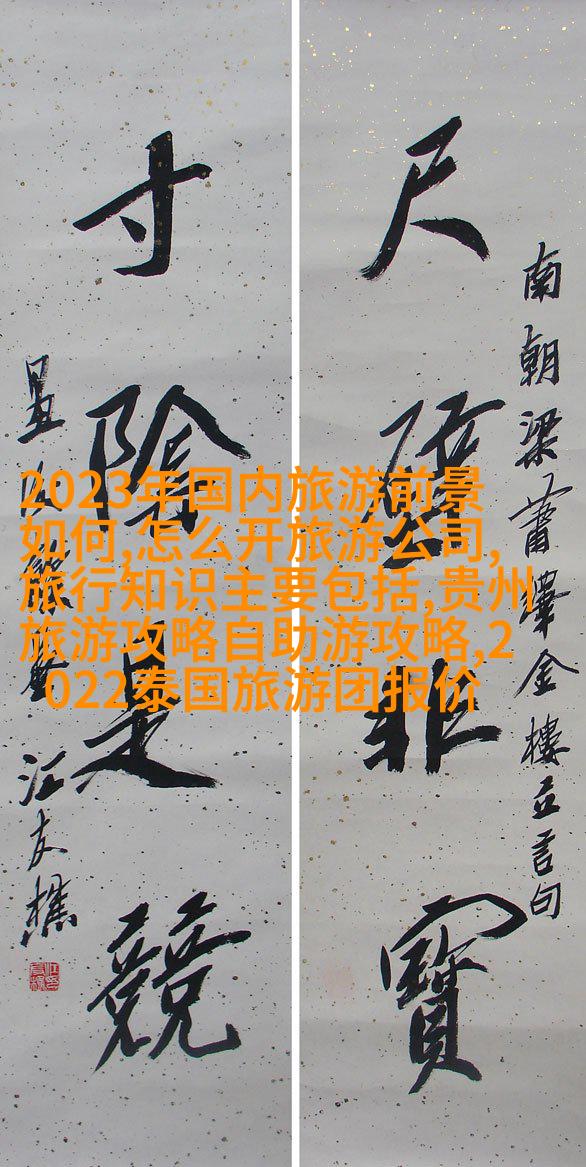 南朝梁蕭繹金樓立言句
尺璧非寶
寸陰是競
江友樵
2023年国内旅游前景
如何,怎么开旅游公司,
旅行知识主要包括,贵州
旅游攻略自助游攻略,2
022泰国旅游团报价